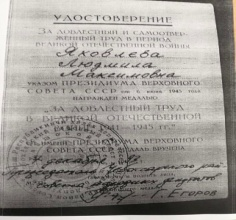 УДОСТОВЕРЕНИЕ
ЗА ДОБЛЕСТНЫЙ И САМООТВЕР-
ЖЕННЫЙ ТРУД В ПЕРИОД
ВЕЛИКОЙ ОТЕЧЕСТВЕННОЙ ВОЙНЫ
Яковлева
Людмила
Максимовна
УКАЗОМ ПРЕЗИДИУМА ВЕРХОВНОГО
СОВЕТА СССР от 6 июня 1945 года
НАГРАЖДЕН МЕДАЛЬЮ
„ЗА ДОБЛЕСТНЫЙ ТРУД
В ВЕЛИКОЙ ОТЕЧЕСТВЕННОЙ
1941—1945 гг."
ПРЕЗИДИУМА ВЕРХОВНОГО
СОВЕТА СССР МЕДАЛЬ ВРУЧЕНА
декабря
депутатов
Г. Егоров